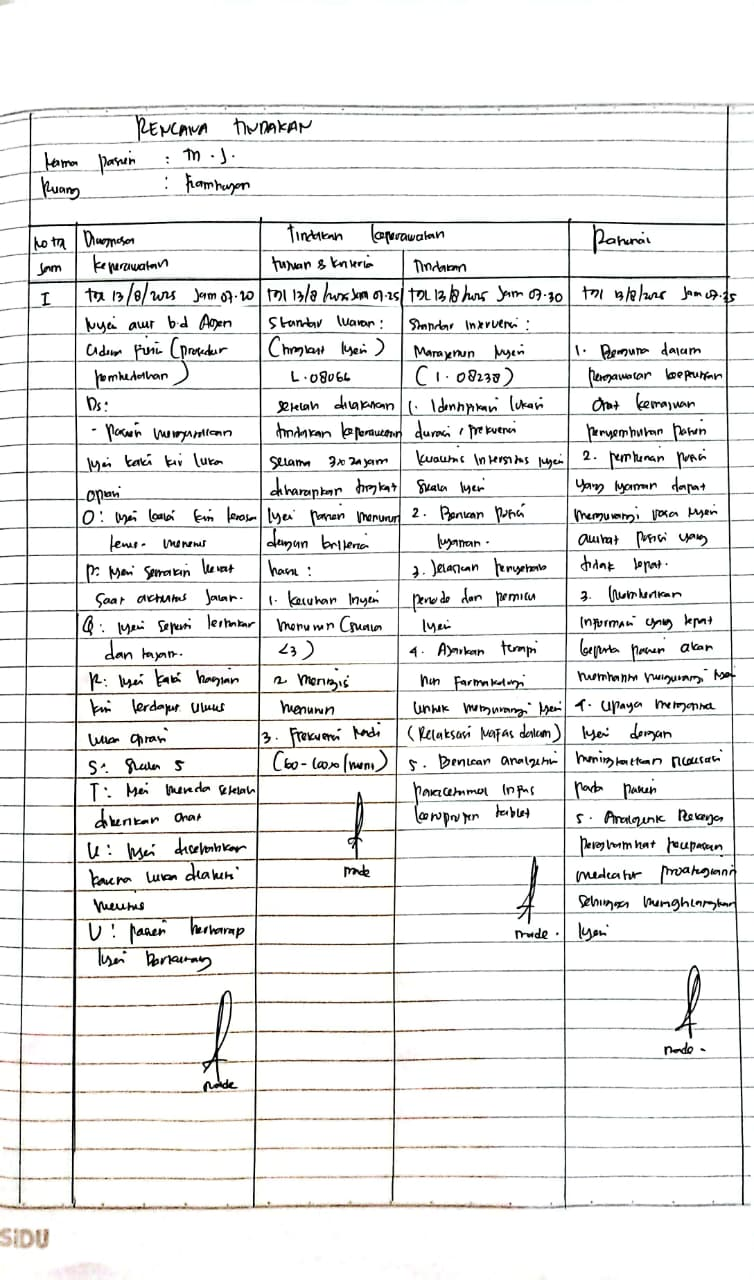 RENCANA TINDAKAN
Nama pasien : M.J.
Ruang :
No tgl
Jam
Diagnosa
keperawatan
Tindakan keperawatan
tujuan & kriteria
Tindakan
Rasional
I
tgl 13/8/2025 Jam 07.20
Nyeri akut b.d Agen
cidera fisik (prosedur
pembedahan)
Ds:
- Pasien mengatakan
nyeri kaki kiri luka
operasi
O: nyeri kaki kiri terasa
terus-menerus
P: Nyeri semakin berat
saat aktivitas jalan.
Q: nyeri seperti terbakar
dan tajam.
R: nyeri kaki bagian
kiri terdapat ulkus
luka operasi
S: Skala 5
T: Nyeri mereda setelah
diberikan obat
U: nyeri disebabkan
karena luka
V: pasien berharap
nyeri berkurang
Made
tgl 13/8/2025 Jam 07.25
Standar luaran:
(tingkat nyeri)
L.08066
setelah dilakukan
tindakan keperawatan
selama 3x24 jam
diharapkan tingkat
nyeri pasien menurun
dengan kriteria
hasil:
1. keluhan nyeri
menurun (skala
<3)
2. meringis
menurun
3. Frekuensi Nadi
(60-100x/menit)
Made
tgl 13/8/2025 Jam 07.30
Standar Intervensi:
Manajemen Nyeri
(1.08238)
1. Identifikasi lokasi
durasi, frekuensi
kualitas intensitas nyeri
skala nyeri
2. Berikan posisi
nyaman.
3. Jelaskan penyebab
periode dan pemicu
nyeri
4. Ajarkan terapi
non farmakologi
untuk mengurangi nyeri
(Relaksasi Nafas dalam)
5. Berikan analgetik
paracetamol infus
tablet
Made.
tgl 13/8/2025 Jam 07.35
1. Berguna dalam
pengawasan keefektifan
obat kemajuan
penyembuhan pasien
2. pemberian posisi
yang nyaman dapat
mengurangi rasa nyeri
akibat posisi yang
tidak tepat.
3. Memberikan
Informasi yang tepat
kepada pasien akan
membantu mengurangi nyeri
4. upaya
nyeri dengan
meningkatkan relaksasi
pada pasien
5. Analgesik Bekerja
penghambat pelepasan
mediator
sehingga menghilangkan
nyeri
Made.
SiDU